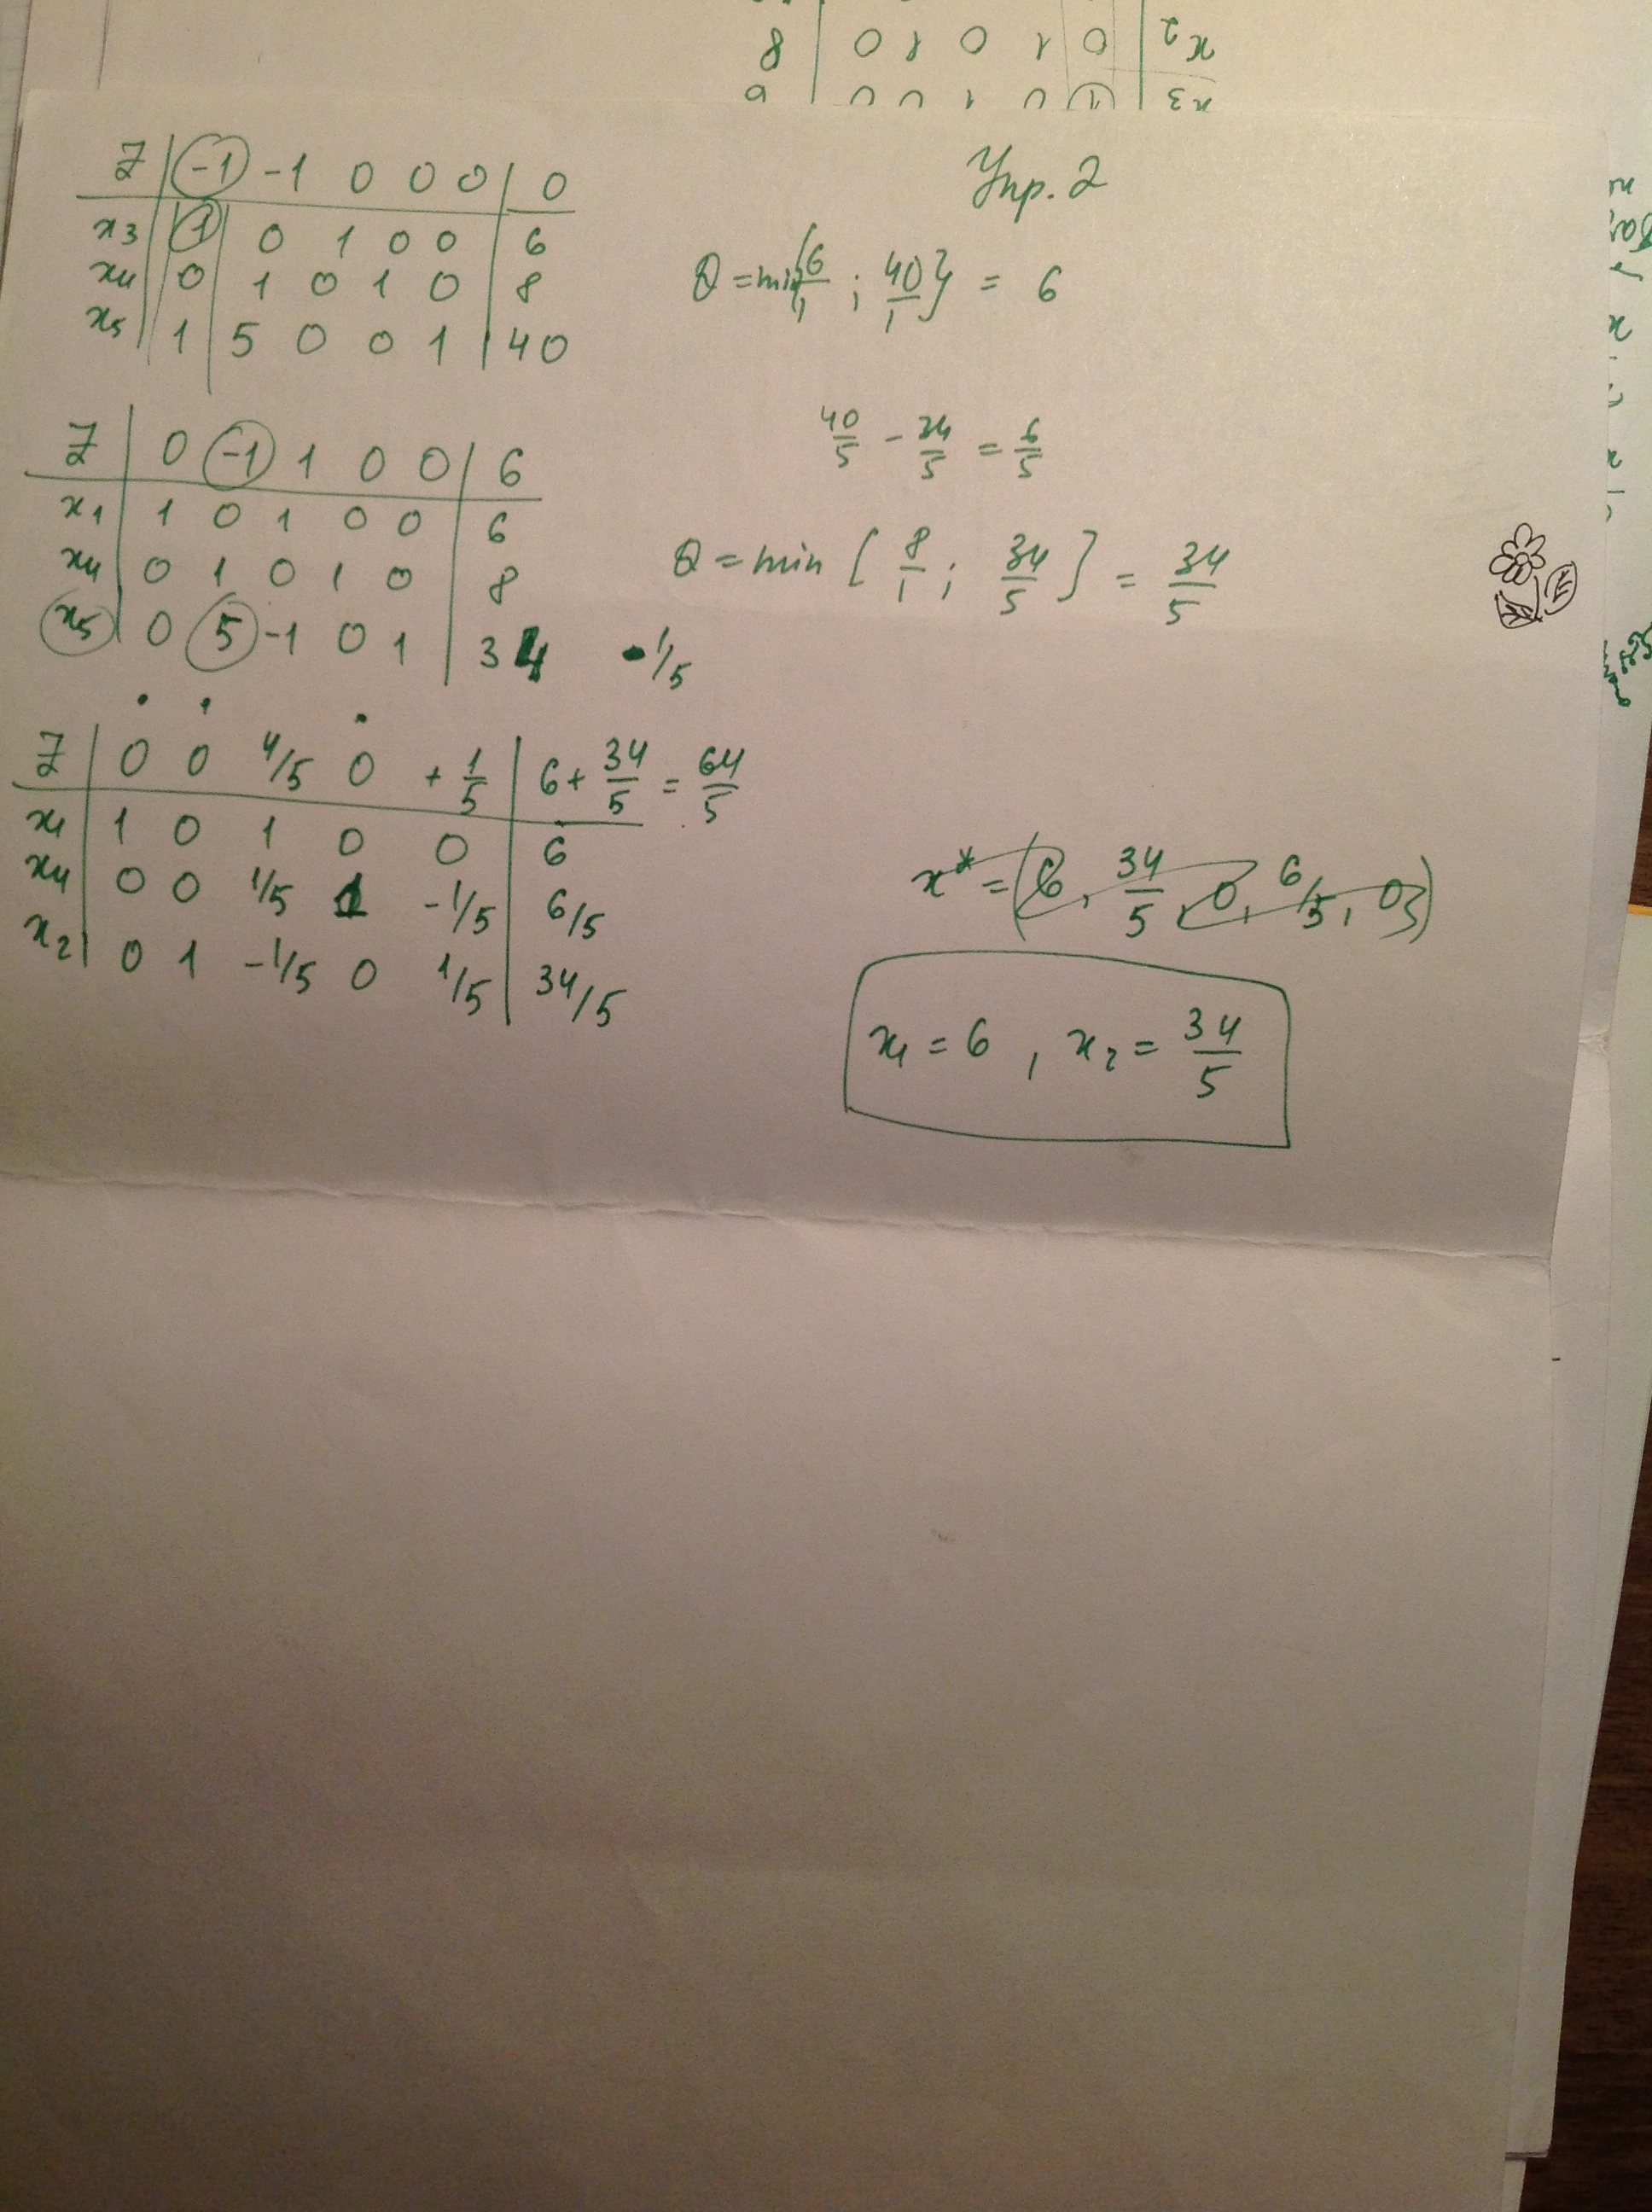 8 | 0 1 0 1 0 | x2
x3
Упр. 2
Z | -1 -1 0 0 0 | 0
x3 | 1 0 1 0 0 | 6
x4 | 0 1 0 1 0 | 8
x5 | 1 5 0 0 1 | 40
θ = min{6/1 ; 40/1} = 6
40/5 - 34/5 = 6/5
Z | 0 -1 1 0 0 | 6
x1 | 1 0 1 0 0 | 6
x4 | 0 1 0 1 0 | 8
x5 | 0 5 -1 0 1 | 34 · 1/5
θ = min { 8/1 ; 34/5 } = 34/5
Z | 0 0 4/5 0 + 1/5 | 6 + 34/5 = 64/5
x1 | 1 0 1 0 0 | 6
x4 | 0 0 1/5 1 -1/5 | 6/5
x2 | 0 1 -1/5 0 1/5 | 34/5
x* = (6, 34/5, 0, 6/5, 0)
x1 = 6 , x2 = 34/5